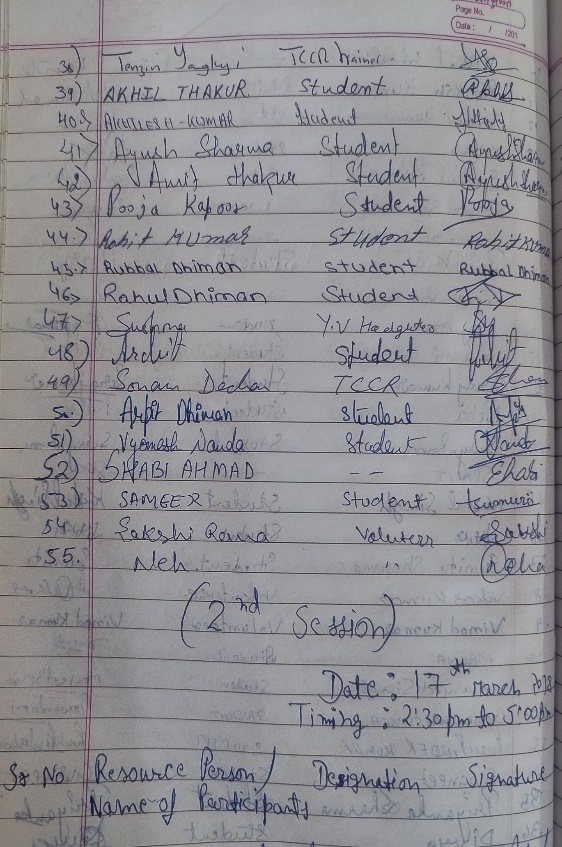 Page No.
Date : / /201
38) Tenzin Yangkyi TCCR trainer
39) AKHIL THAKUR Student
40) AKHILESH-KUMAR Student
41) Ayush Sharma Student Ayush Sharma
42) Amit thakur Student
43) Pooja Kapoor Student Pooja
44) Rohit KUMAR Student Rohit Kumar
45) Rubbal Dhiman student Rubbal Dhiman
46) Rahul Dhiman Student
47) Y.V Headquter
48) Archit Student
49) Sonam Dechen TCCR
50) Arpit Dhiman Student
51) Vyomesh Nanda Student Nanda
52) SHABI AHMAD - -
53) SAMEER Student
54. Sakshi Voluters Sakshi
55. Neh.
(2nd Session)
Date : 17th March
Timing : 2:30 pm to 5:00 pm
Sr No. Resource Person/ Designation Signature
Name of Participants